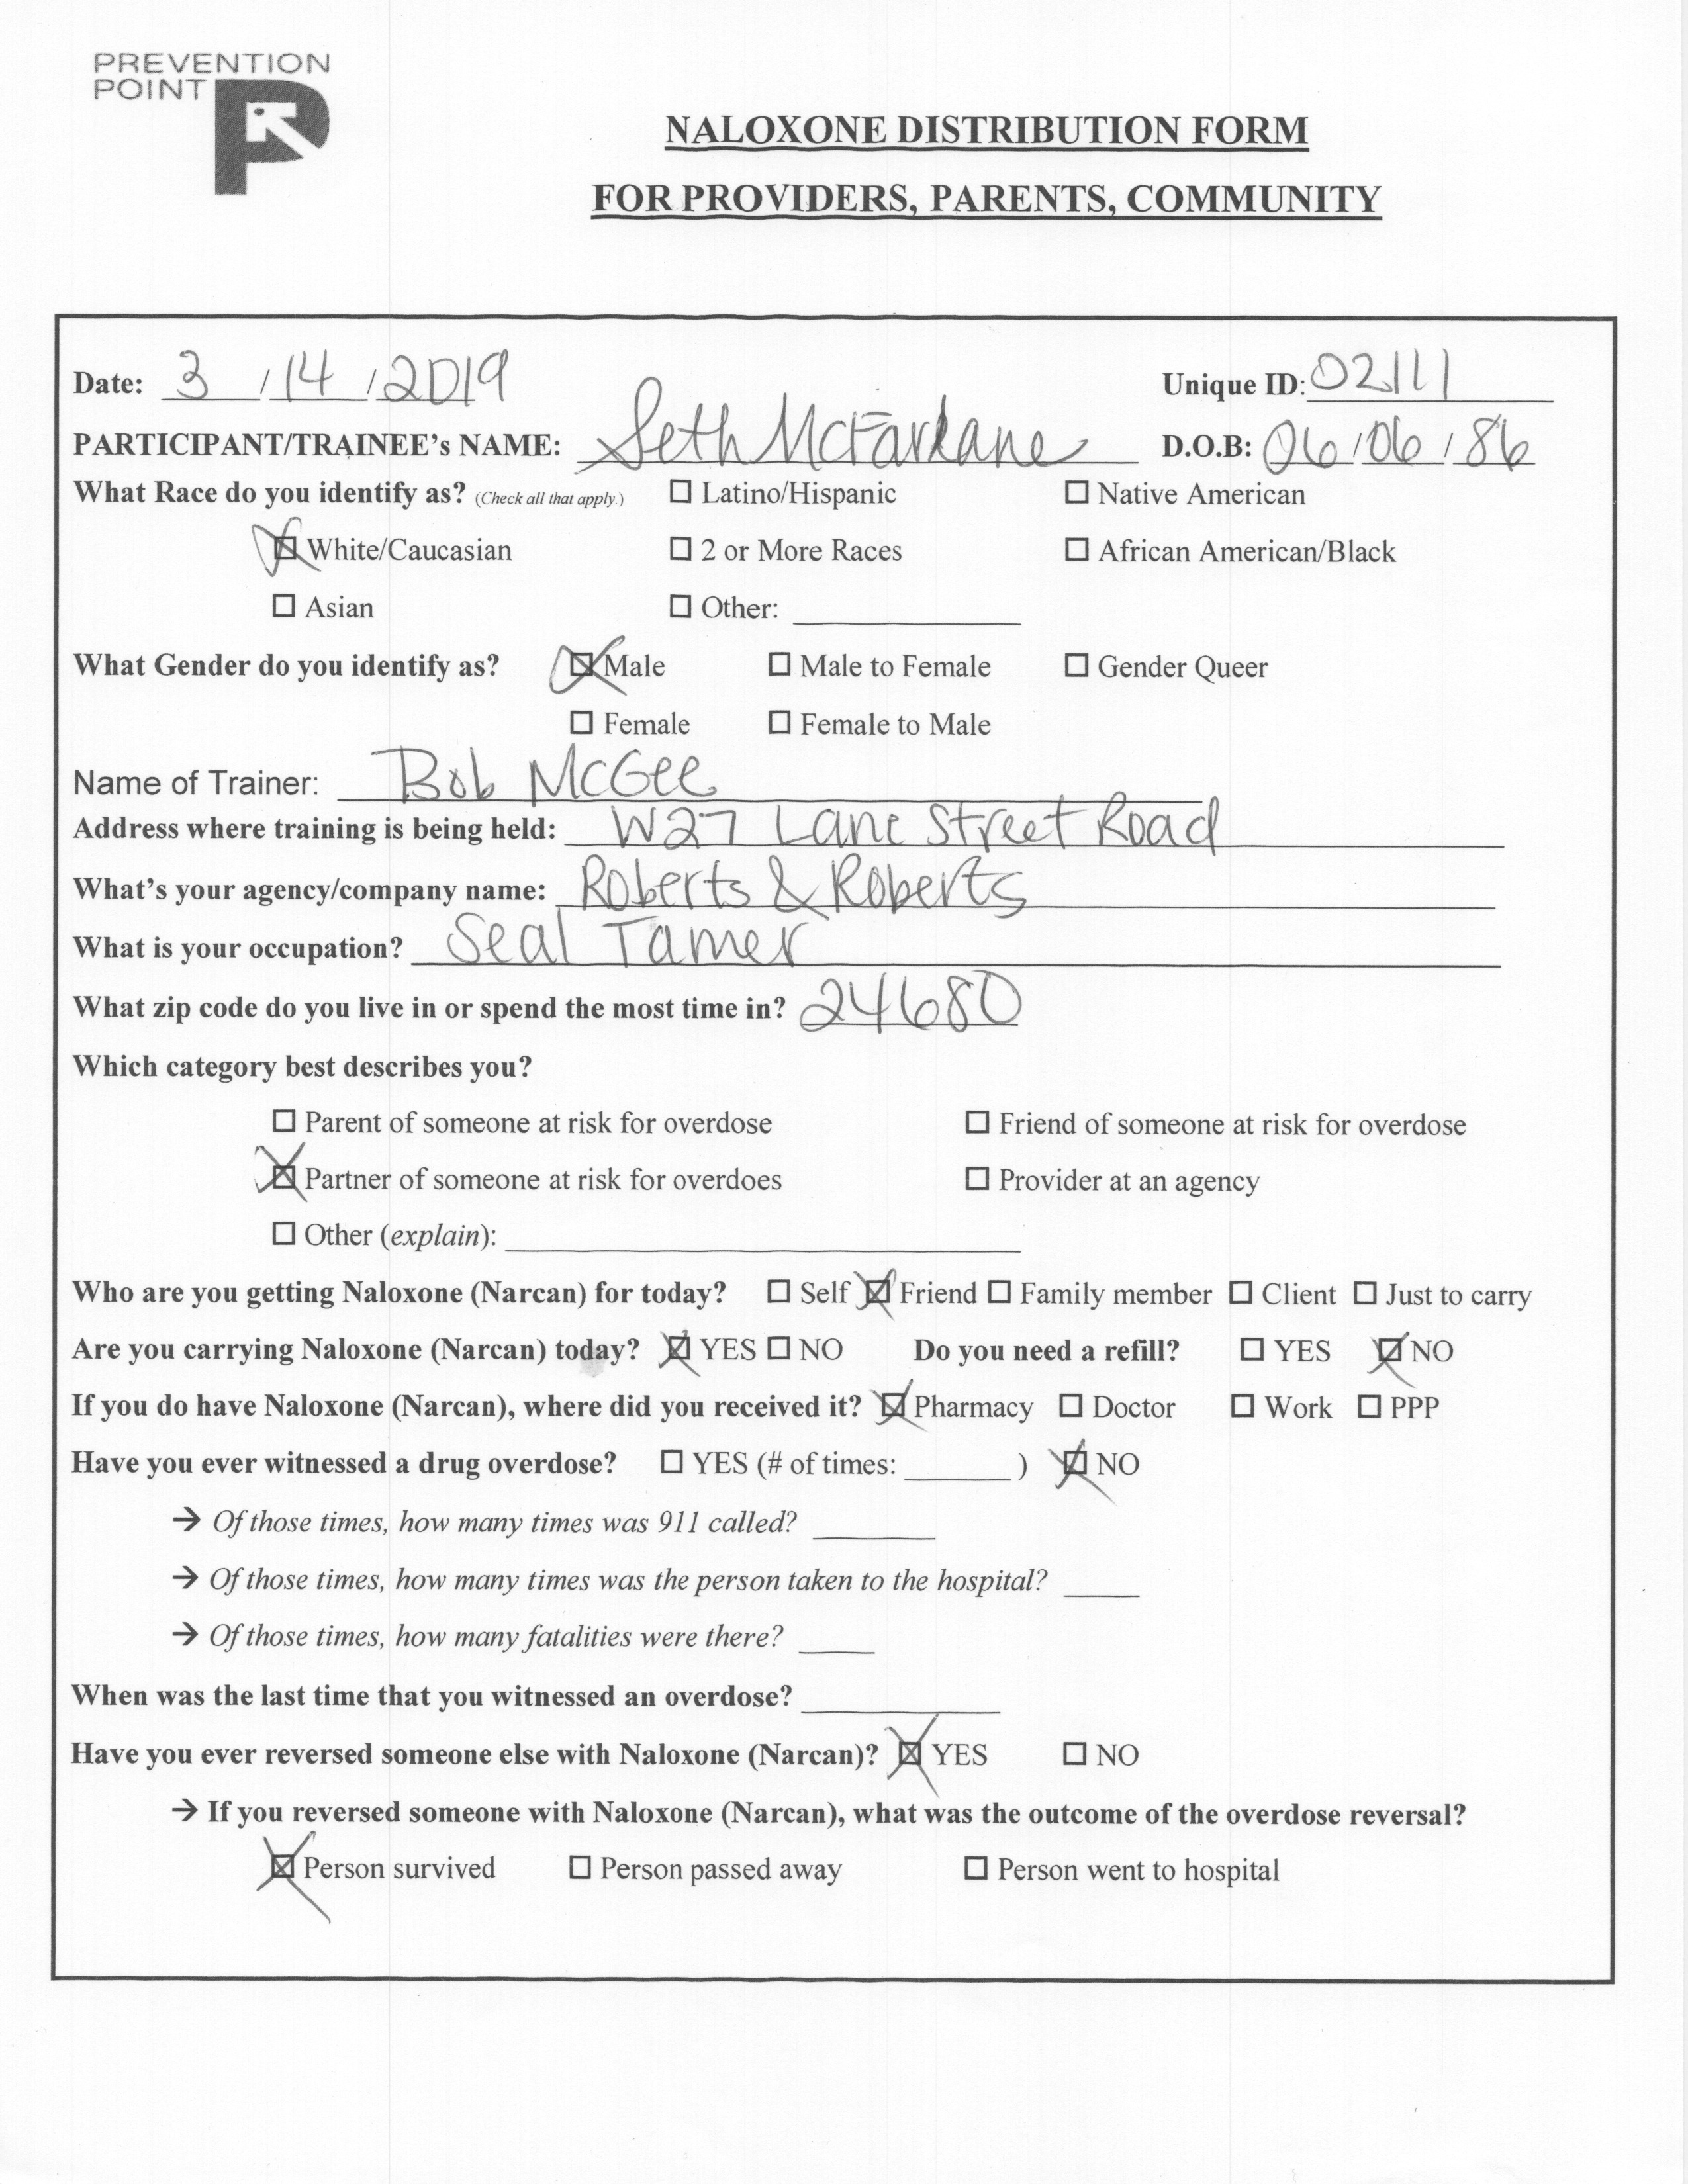 PREVENTION
POINT
NALOXONE DISTRIBUTION FORM
FOR PROVIDERS, PARENTS, COMMUNITY
Date: 3 / 14 / 2019 Unique ID: 02111
PARTICIPANT/TRAINEE's NAME: Seth McFarlane D.O.B: 06/06/86
What Race do you identify as? (Check all that apply.) ☐ Latino/Hispanic ☐ Native American
☒ White/Caucasian ☐ 2 or More Races ☐ African American/Black
☐ Asian ☐ Other: ____
What Gender do you identify as? ☒ Male ☐ Male to Female ☐ Gender Queer
☐ Female ☐ Female to Male
Name of Trainer: Bob McGee
Address where training is being held: W27 Lane Street Road
What's your agency/company name: Roberts & Roberts
What is your occupation? Seal Tamer
What zip code do you live in or spend the most time in? 24680
Which category best describes you?
☐ Parent of someone at risk for overdose ☐ Friend of someone at risk for overdose
☒ Partner of someone at risk for overdoes ☐ Provider at an agency
☐ Other (explain): ____
Who are you getting Naloxone (Narcan) for today? ☐ Self ☒ Friend ☐ Family member ☐ Client ☐ Just to carry
Are you carrying Naloxone (Narcan) today? ☒ YES ☐ NO Do you need a refill? ☐ YES ☒ NO
If you do have Naloxone (Narcan), where did you received it? ☒ Pharmacy ☐ Doctor ☐ Work ☐ PPP
Have you ever witnessed a drug overdose? ☐ YES (# of times: ____ ) ☒ NO
→ Of those times, how many times was 911 called? ____
→ Of those times, how many times was the person taken to the hospital? ____
→ Of those times, how many fatalities were there? ____
When was the last time that you witnessed an overdose? ____
Have you ever reversed someone else with Naloxone (Narcan)? ☒ YES ☐ NO
→ If you reversed someone with Naloxone (Narcan), what was the outcome of the overdose reversal?
☒ Person survived ☐ Person passed away ☐ Person went to hospital